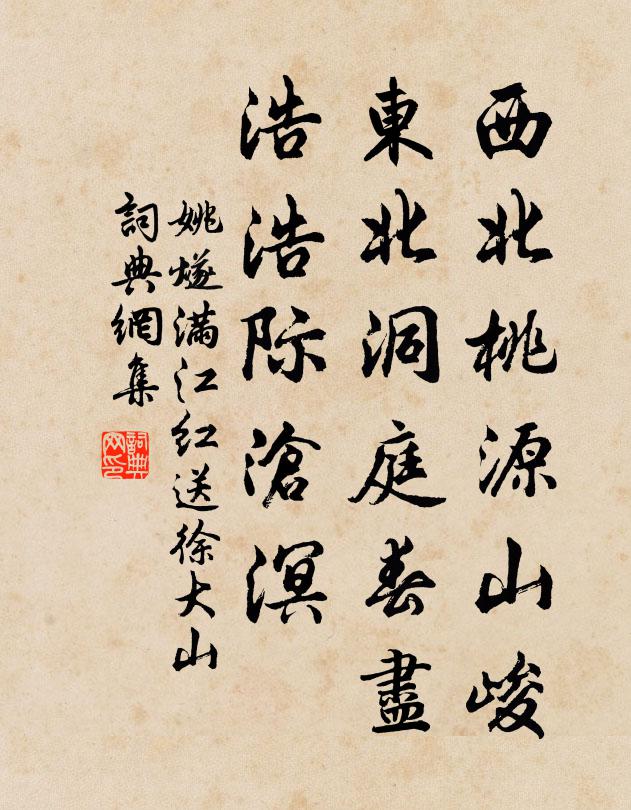 西北桃源山峻
東北洞庭春盡
浩浩际滄溟
姚燧满江红送徐大山
詞典網集
詞典
网印